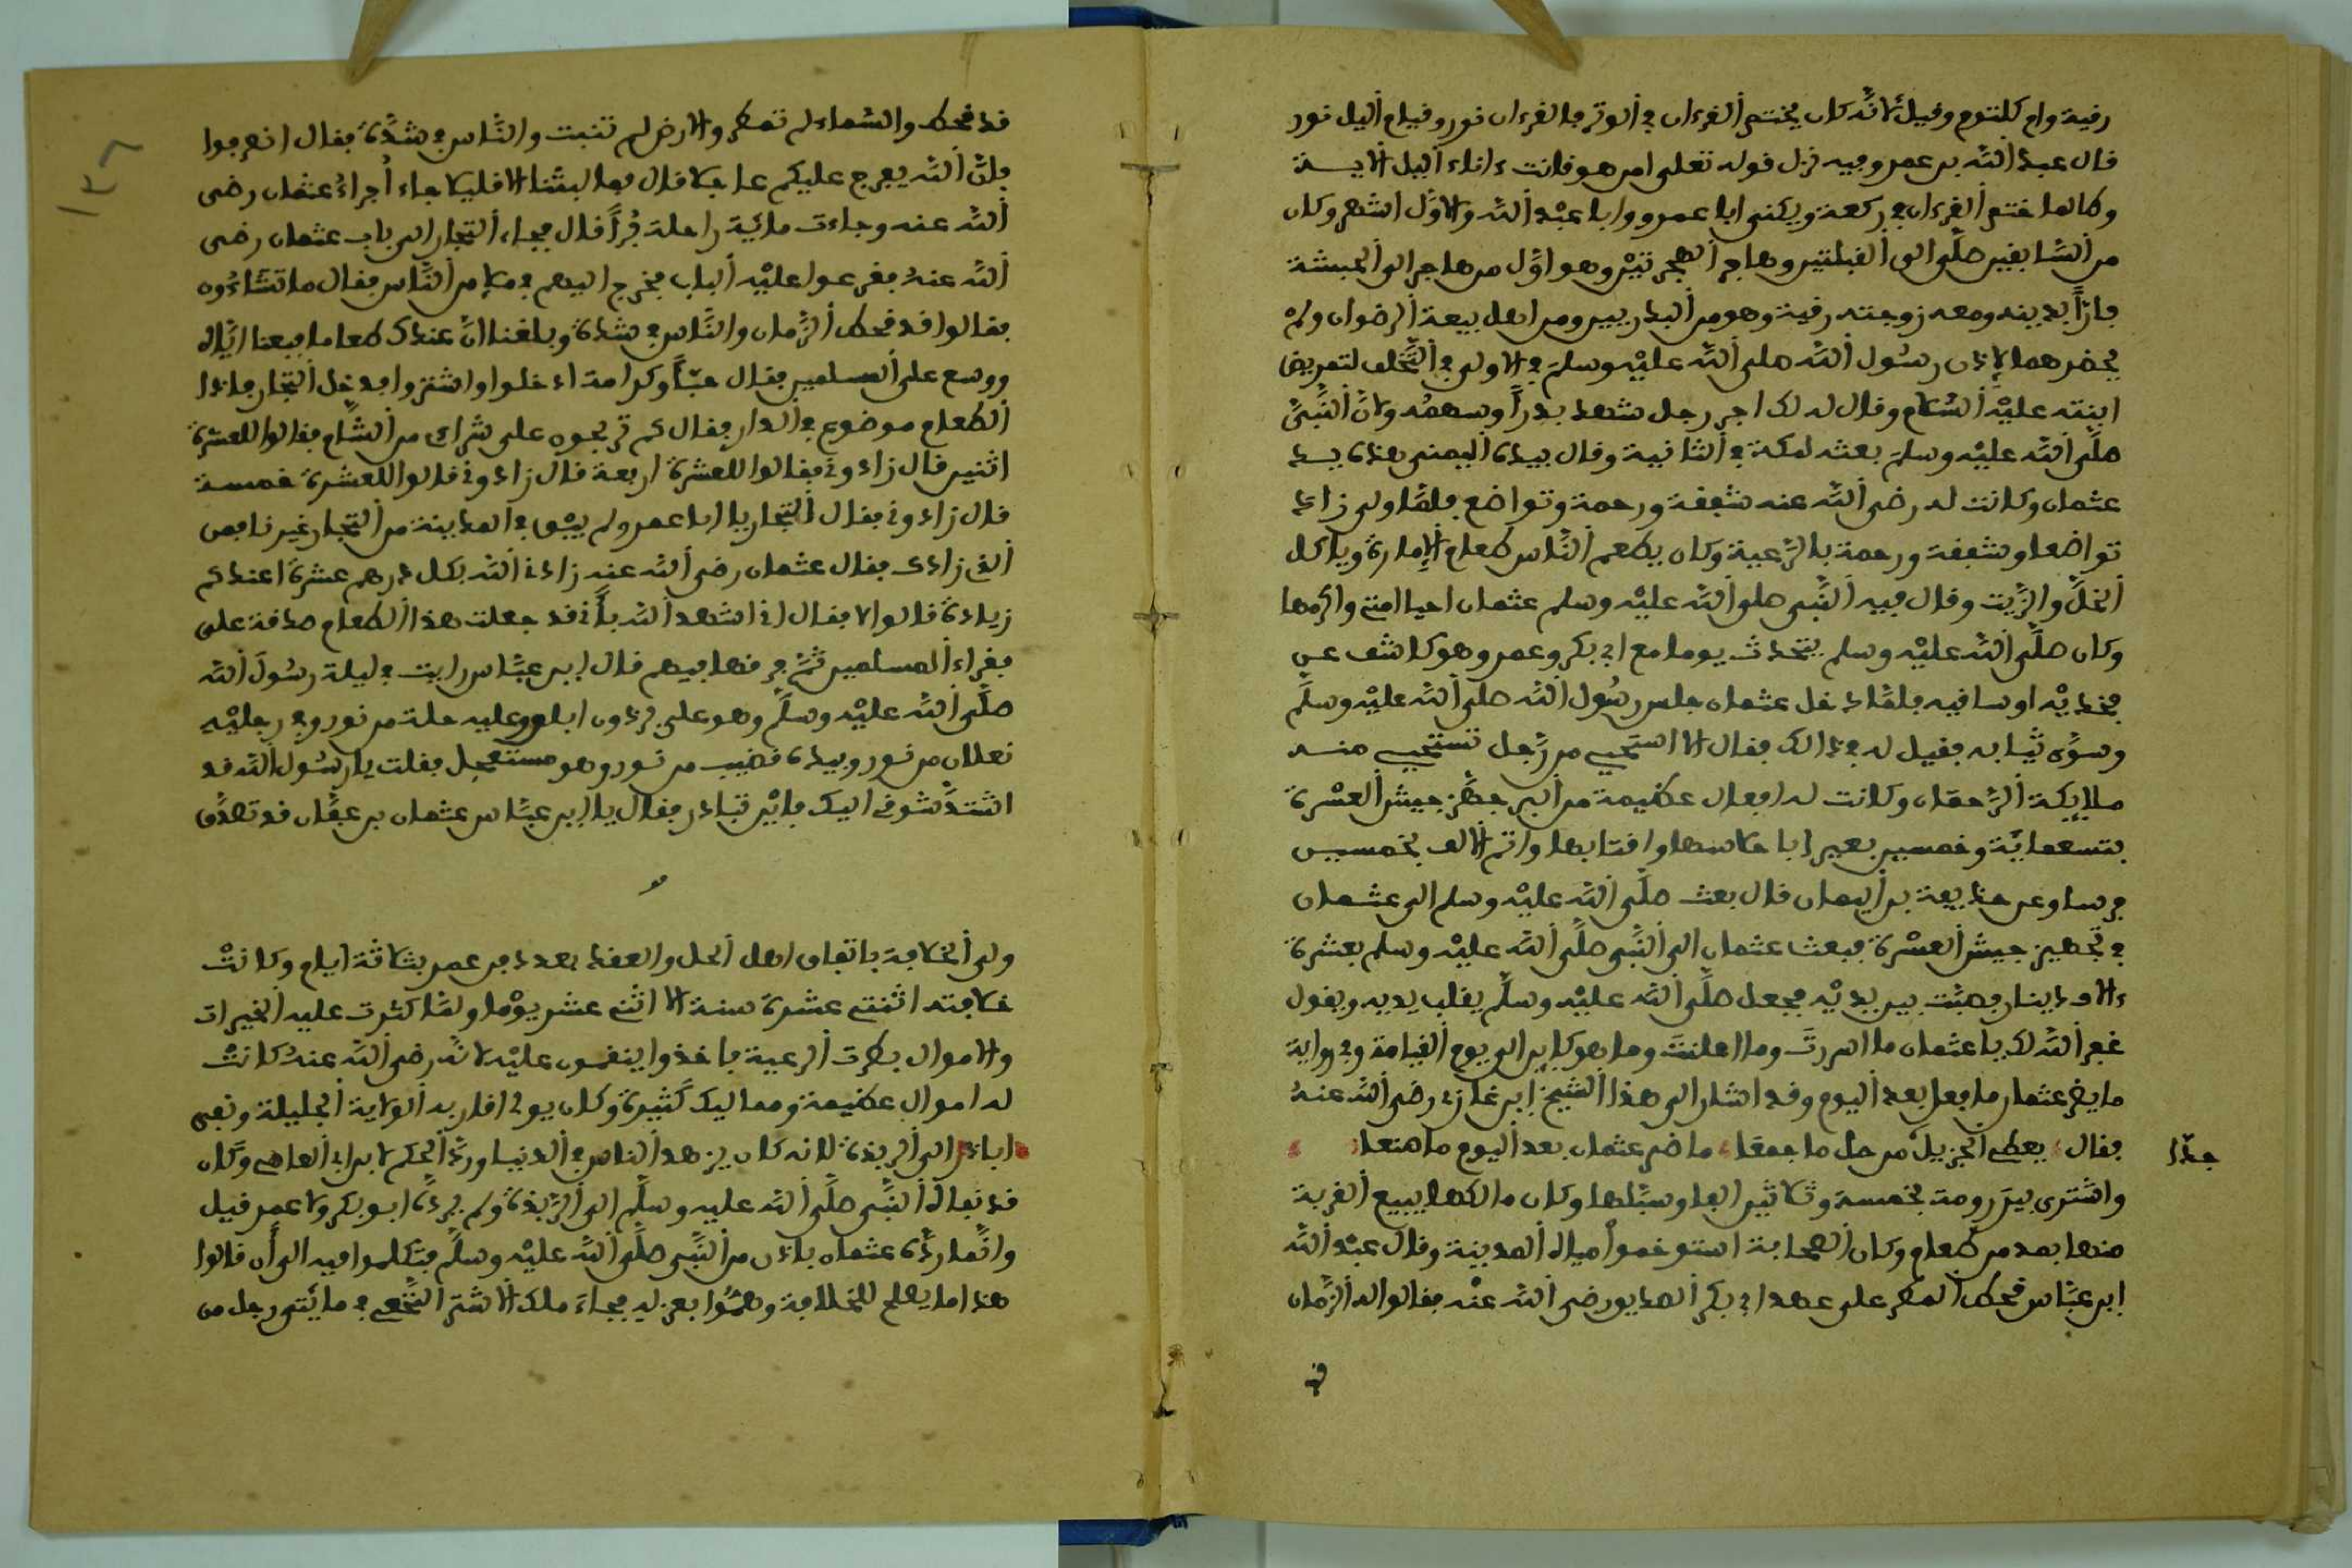 رقية وام كلثوم وقيل لانه كان يختم القرءان في الوتر فالقرءان نور وقيام اليل نور
قال عبد الله بن عمر وفيه نزل قوله تعلى امن هو قانت ءاناء اليل الايـة
وكانما ختم القرءان في ركعة ويكنى ابا عمرو وابا عبد الله والاول اشهر وكان
من السابقين صلى الى القبلتين وهاجر الهجرتين وهو اول من هاجر الى الحبشة
فارا بدينه ومعه زوجته رقية وهو من البدريين ومن اهل بيعة الرضوان ولم
يحضرهما لإذن رسول الله صلى الله عليه وسلم في الاولى في التخلف لتمريض
ابنته عليه السلام وقال له لك اجر رجل شهد بدرا وسهمه ولان النبي
صلى الله عليه وسلم بعثه لمكة في الثانية وقال بيده اليمنى هذه يـد
عثمان وكانت له رضي الله عنه شفقة ورحمة وتواضع فلما ولي زاد
تواضعا وشفقة ورحمة بالرعية وكان يطعم الناس طعام الإمارة وياكل
الخل والزيت وقال فيه النبي صلى الله عليه وسلم عثمان احيا امتي واكرمها
وكان صلى الله عليه وسلم يتحدث يوما مع ابي بكر وعمر وهو كاشف عن
فخذيه او ساقيه فلما دخل عثمان جلس رسول الله صلى الله عليه وسلم
وسوى ثيابه فقيل له في ذالك فقال الا استحيي من رجل تستحيي منـه
ملايكة الرحمان وكانت له افعال عظيمة من البر جهز جيش العسرة
بتسعماية وخمسين بعيرا باحلاسها واقتابها واتم الالف بخمسيـن
فرسا وعن حذيفة بن اليمان قال بعث صلى الله عليه وسلم الى عثمان
في تجهيز جيش العسرة فبعث عثمان الى النبي صلى الله عليه وسلم بعشرة
ءالاف دينار فصبت بين يديه فجعل صلى الله عليه وسلم يقلب يديه ويقول
غفر الله لك يا عثمان ما اسررت وما اعلنت وما هو كاين الى يوم القيامة وفي رواية
ما يضر عثمان ما فعل بعد اليوم وقد اشار الى هذا الشيخ ابن غازي رضي الله عنه
فقال يعطي الجزيل من حل ما جمعا ما ضر عثمان بعد اليوم ما صنعا
جدا
واشترى بير رومة بخمسة وثلاثين الفا وسبلها وكان مالكها يبيع القربة
منها بمد من طعام وكان الصحابة استوخموا مياه المدينة وقال عبد الله
ابن عباس قحط المطر على عهد ابي بكر الصديق رضي الله عنه فقالوا له الزمان
قد قحط والسماء لم تمطر والارض لم تنبت والناس في شدة فقال انصرفوا
فان الله يفرج عليكم عاجلا قال فما لبثنا الا قليلا جاء أجراء عثمان رضي
الله عنه وجاءت ماية راحلة برا قال فجاء التجار الى باب عثمان رضي
الله عنه فقرعوا عليه الباب فخرج اليهم في ملإ من الناس فقال ما تشاءون
فقالوا قد قحط الزمان والناس في شدة وبلغنا ان عندك طعاما فبعنا اياه
ووسع على المسلمين فقال حبا وكرامة ادخلوا واشتروا فدخل التجار فاذا
الطعام موضوع في الدار فقال كم تربحوه على شراي من الشام فقالوا للعشرة
اثنين قال زادوني فقالوا للعشرة اربعة قال زادوني قالوا للعشرة خمسـة
قال زادوني فقال التجار يا ابا عمرو لم يبق في المدينة من التجار غيرنا فمن
الذي زادك فقال عثمان رضي الله عنه زادني الله بكل درهم عشرة اعندكم
زيادة قالوا لا فقال اني اشهد الله باني قد جعلت هذا الطعام صدقة على
فقراء المسلمين ثم فرقها فيهم قال ابن عباس رايت في ليلة رسول الله
صلى الله عليه وسلم وهو على برذون ابلق وعليه حلة من نور وفي رجليه
نعلان من نور وبيده قضيب من نور وهو مستعجل فقلت يا رسول الله قد
اشتد شوقي اليك فاين تبادر فقال يا ابن عباس عثمان بن عفان قد تصدق
ولي الخلافة باتفاق اهل الحل والعقد بعد دفن عمر بثلاثة ايام وكانت
خلافته اثنتي عشرة سنة الا اثني عشر يوما ولما كثرت عليه الخيرات
والاموال بطرت الرعية فاخذوا ينقمون عليه لانه رضي الله عنه كانت
له اموال عظيمة ومماليك كثيرة وكان يولي اقاربه الولاية الجليلة ونفى
اباذر الى الربذة لانه كان يزهد الناس في الدنيا ورد الحكم بن ابي العاصي وكان
قد نفاه النبي صلى الله عليه وسلم الى الربذة ولم يرده ابو بكر ولا عمر قيل
وانما رده عثمان باذن من النبي صلى الله عليه وسلم فتكلموا فيه الى أن قالوا
هذا ما يصلح للخلافة وهموا بعزله فجاء ملك الاشتر النخعي في مائتي رجل من